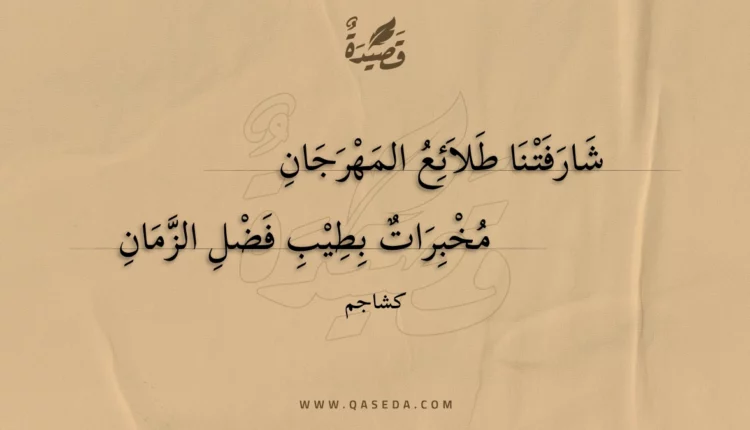 قَصِيدَةٌ
شَارَفَتْنَا طَلاَئِعُ المَهْرَجَانِ
مُخْبِرَاتٌ بِطِيْبِ فَضْلِ الزَّمَانِ
كشاجم
WWW.QASEDA.COM